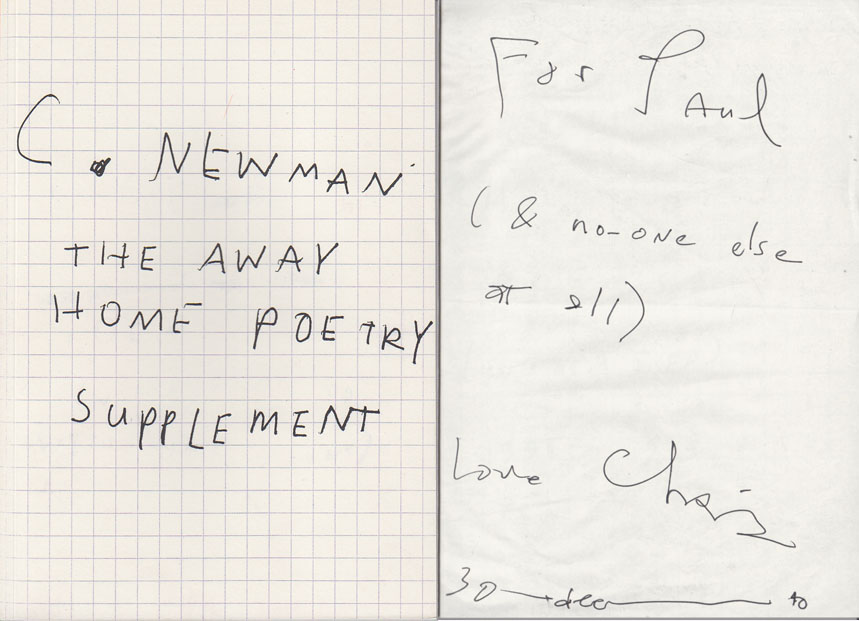 C. NEWMAN
THE AWAY
HOME POETRY
SUPPLEMENT
For Paul
(& no-one else
at all)
Love Chris
30 dec